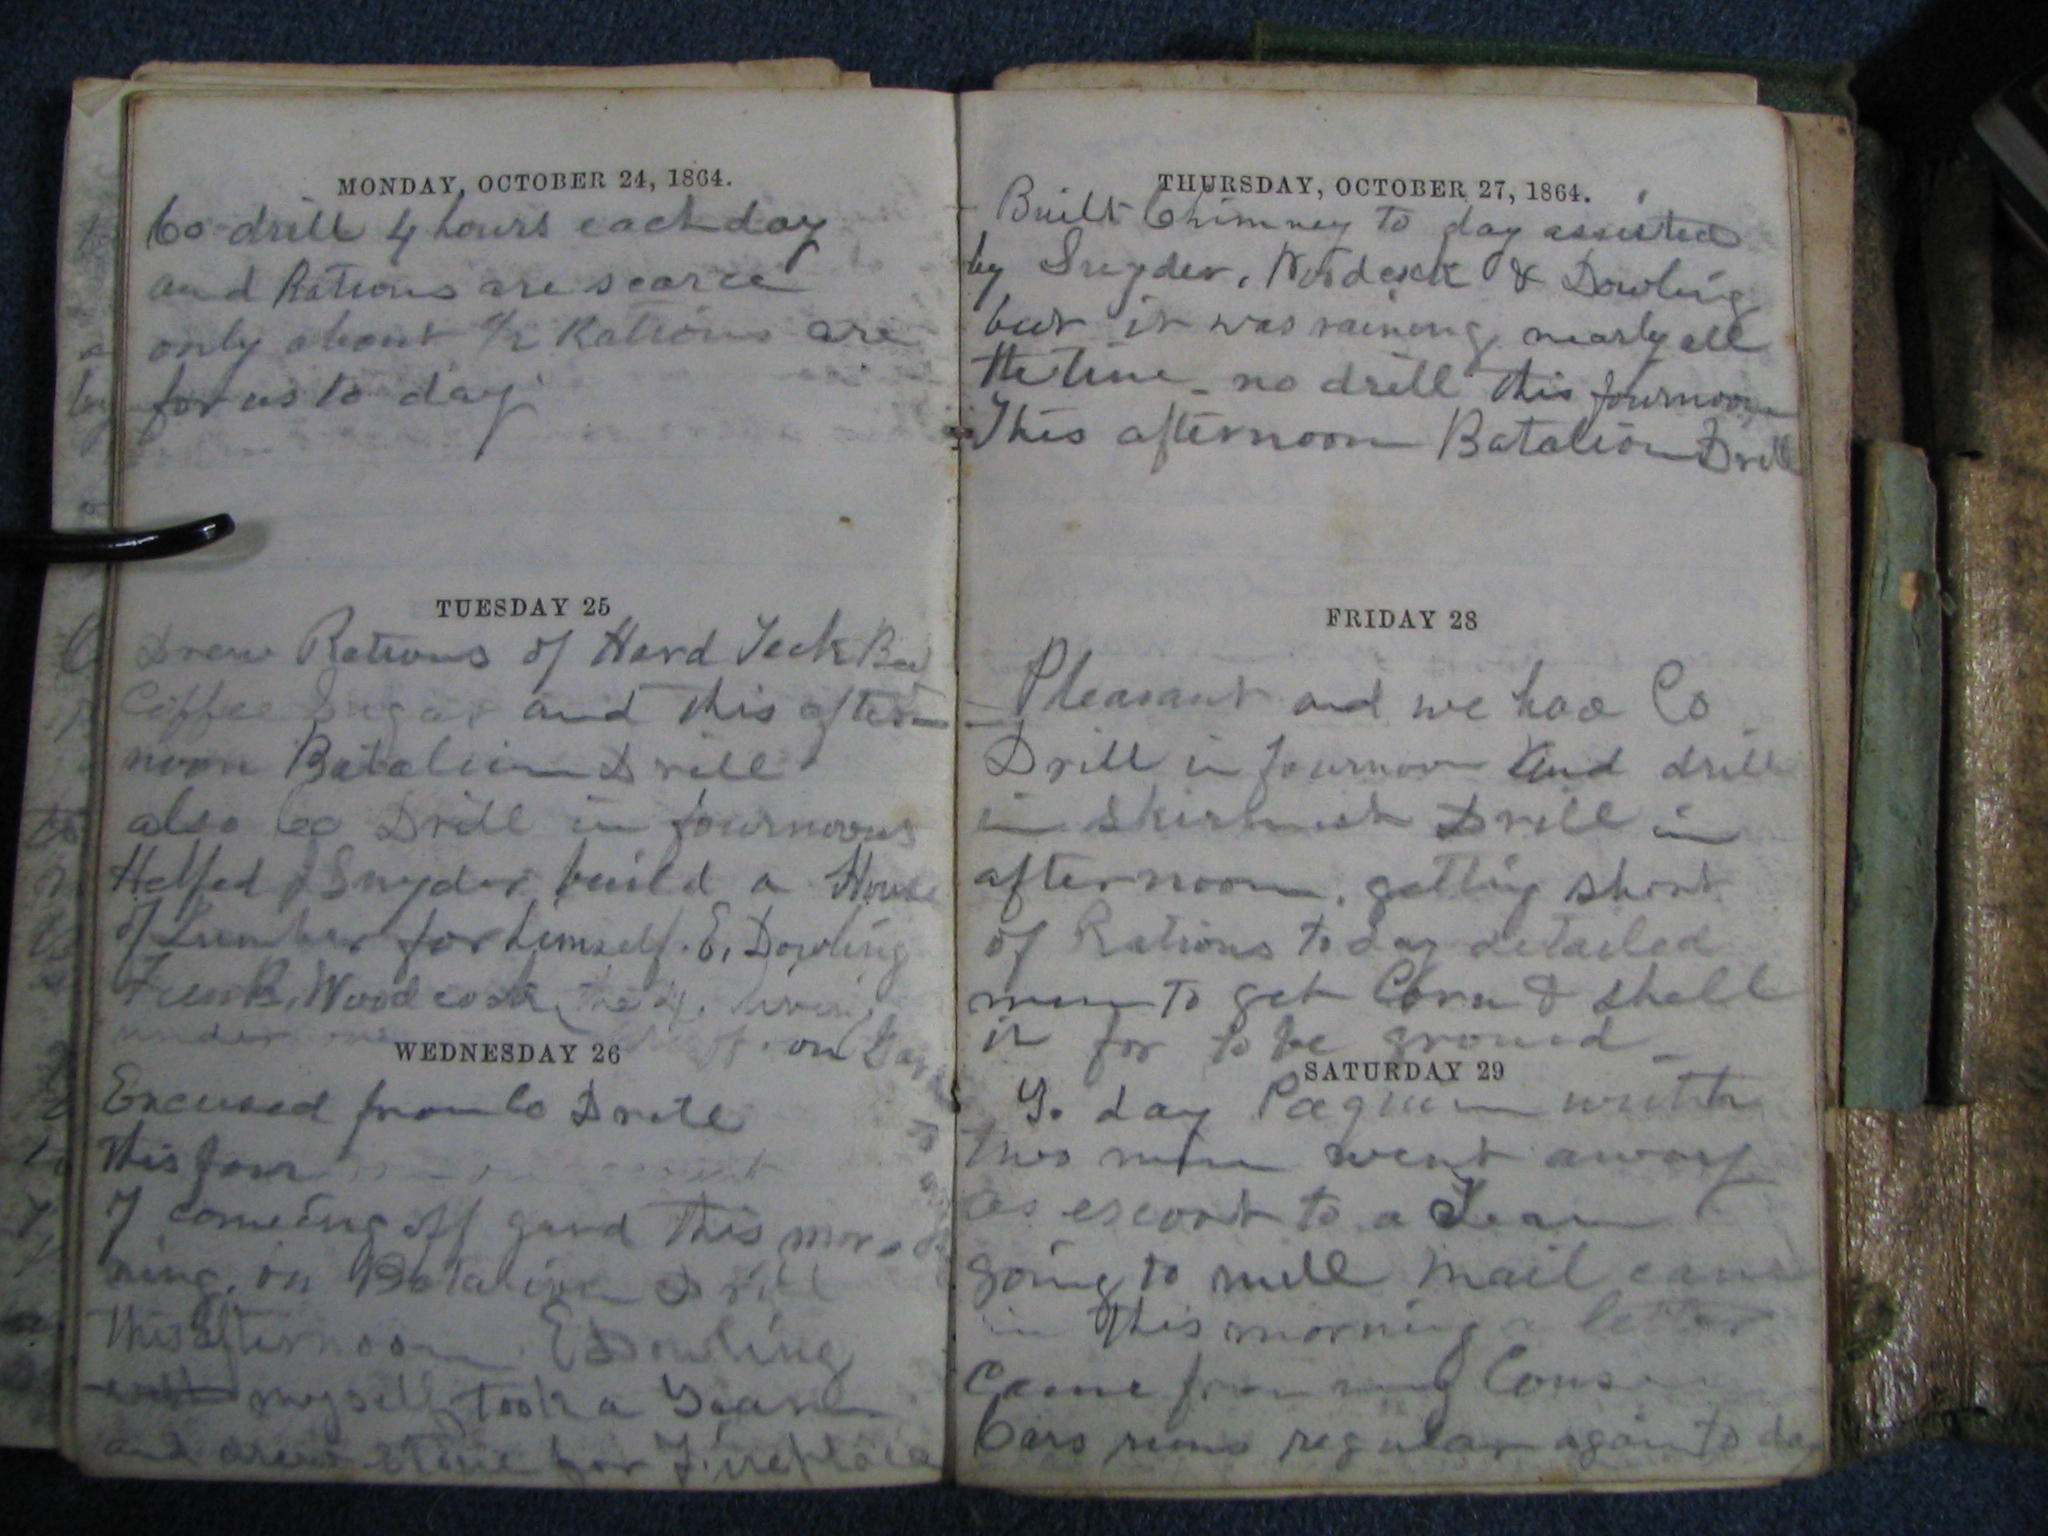 MONDAY, OCTOBER 24, 1864.
Co drill 4 hours each day
and Rations are scarce
only about 1/2 Rations are
for us to day
TUESDAY 25
Drew Rations of Hard Tack
Coffee Sugar and this after-
noon Batalion Drill
also Co Drill in fournoon
Helped Snyder build a House
of Lumber for himself. E. Dowling
Woodcock the 4.
under on
WEDNESDAY 26
Excused from Co Drill
this four
I comeing off gard this mor-
ning, on Batalion Drill
this afternoon E Dowling
myself took a Team
and drew stone for Fireplace
THURSDAY, OCTOBER 27, 1864.
Built Chimney to day assisted
by Snyder, Wodcock & Dowling
but it was raining nearly all
the time - no drill this fournoon
This afternoon Batalion Drill
FRIDAY 28
Pleasant and we had Co
Drill in fournoon and drill
in Skirmish Drill in
afternoon, getting short
of Rations to day detailed
men to get Corn & shell
it for to be ground -
SATURDAY 29
To day with
two men went away
as escort to a Team
going to mill Mail came
in this morning a letter
came from my Cousin
Cars runs regular again to day